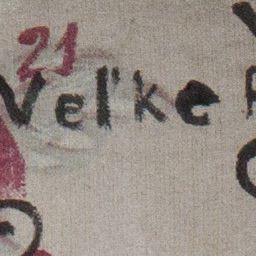 21
Veľke